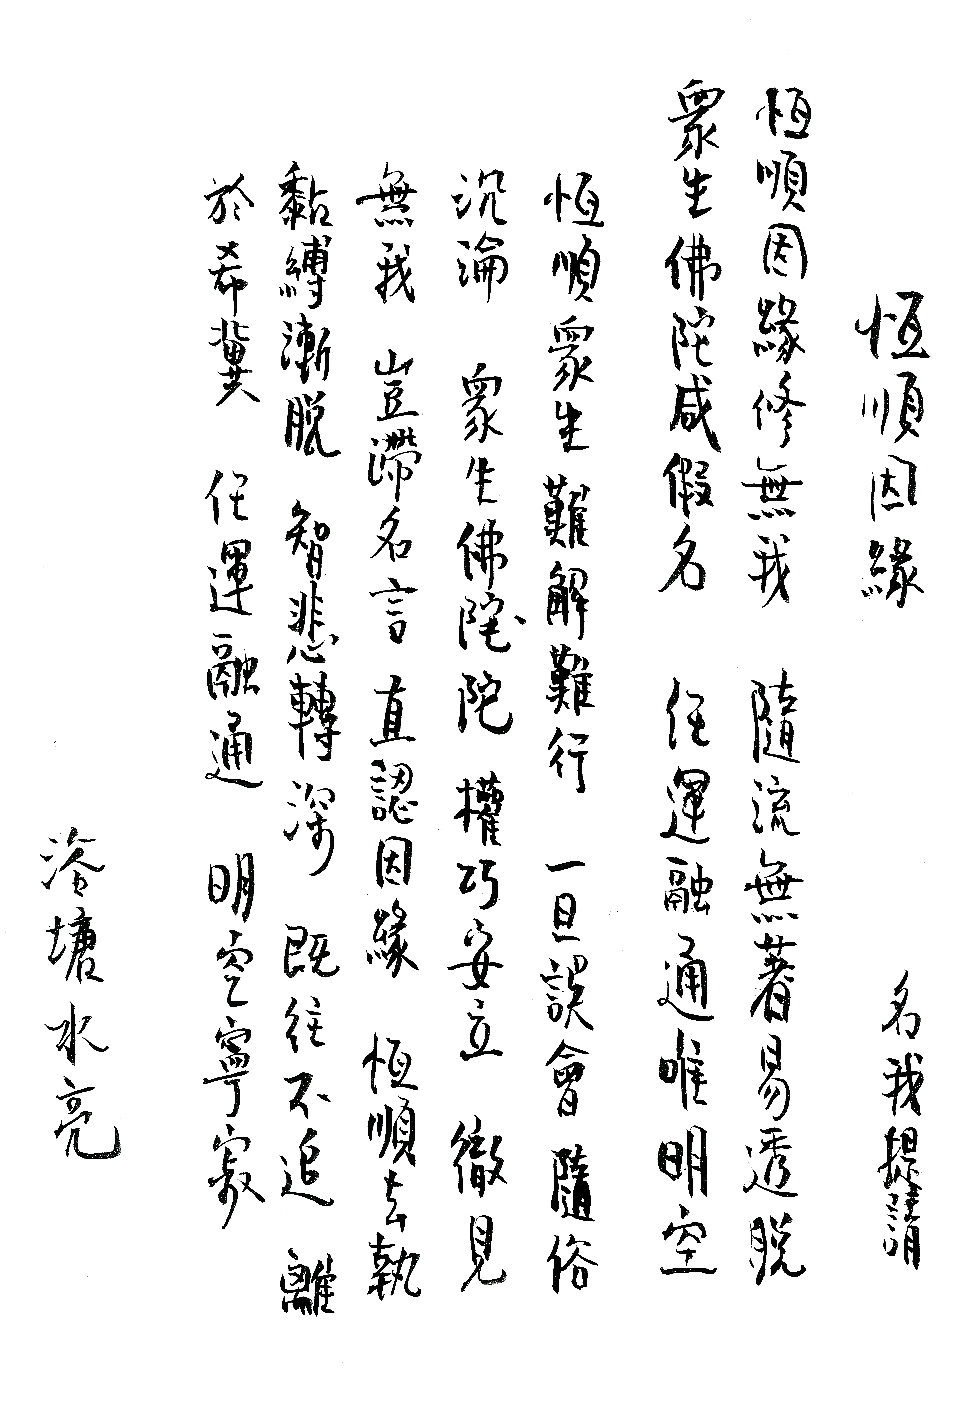 恆順因緣
名我提請
恆順因緣修無我 隨流無著易透脫
眾生佛陀咸假名 任運融通唯明空
恆順眾生難解難行 一旦誤會 隨俗
沉淪 眾生佛陀陀 權巧安立 徹見
無我 豈滯名言 直認因緣 恆順去執
黏縛漸脫 智悲轉深 既往不追 離
於希冀 任運融通 明空寧寂
洛塘水亮